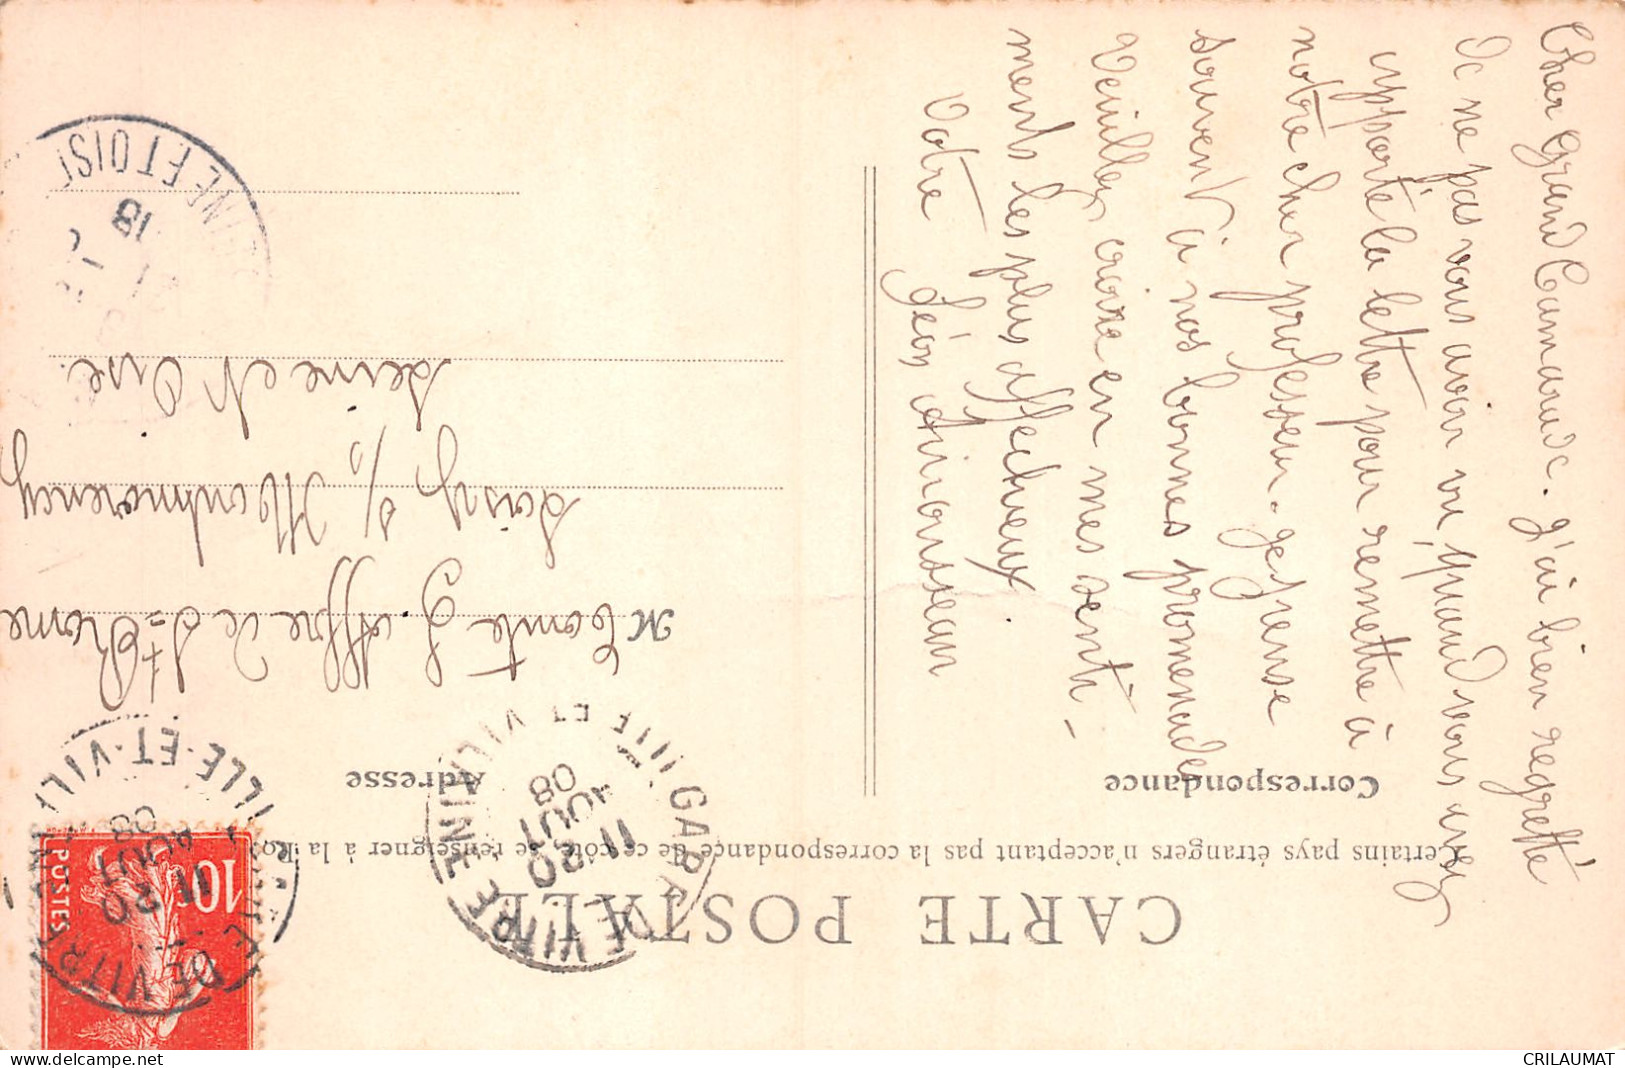 CARTE POSTALE
Certains pays étrangers n'acceptant pas la correspondance de ce côté, se renseigner à la
Correspondance
Adresse
Cher Grand Camarade. J'ai bien regretté
de ne pas vous avoir vu, quand vous avez
apporté la lettre pour remettre à
notre cher professeur. Je pense
souvent à nos bonnes promenades
Veuillez croire en mes senti-
ments les plus affectueux
Votre Léon
M Comte J. Affre de St Rome
Soisy s/ Montmorency
Seine et Oise.
GARE DE VITRÉ
ILLE ET VILAINE
11 20
AOUT
08
GARE DE VITRÉ
ILLE-ET-VILAINE
11 20
AOUT
08
10
POSTES
18
CRILAUMAT